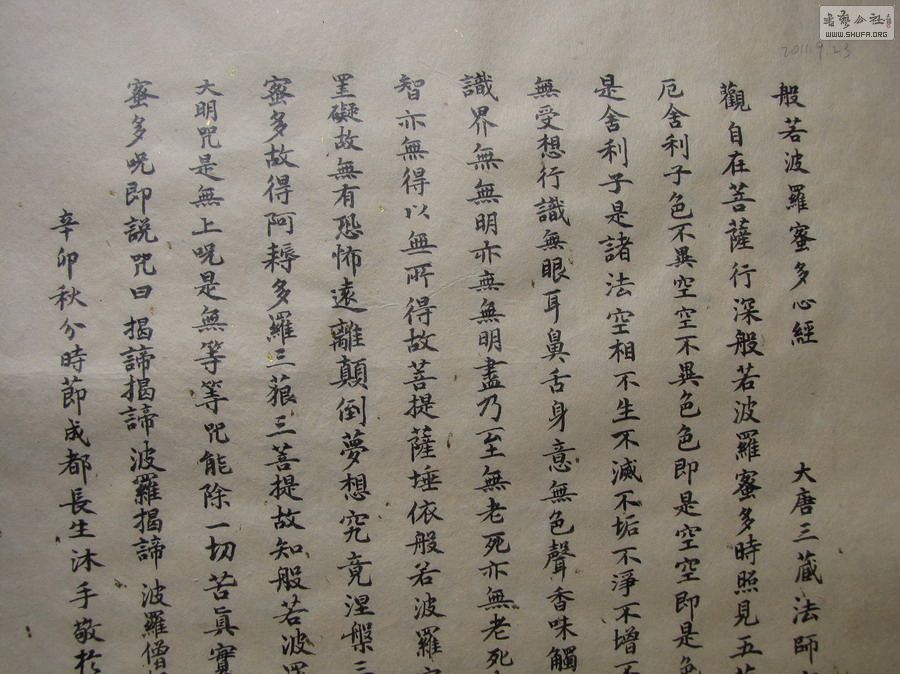 書藝公社
WWW.SHUFA.ORG
2011.9.23
般若波羅蜜多心經 大唐三藏法師
觀自在菩薩行深般若波羅蜜多時照見五
厄舍利子色不異空空不異色色即是空空即是色
是舍利子是諸法空相不生不滅不垢不淨不增不
無受想行識無眼耳鼻舌身意無色聲香味觸
識界無無明亦無無明盡乃至無老死亦無老死
智亦無得以無所得故菩提薩埵依般若波羅
罣礙故無有恐怖遠離顛倒夢想究竟涅槃三
蜜多故得阿耨多羅三藐三菩提故知般若波羅
大明咒是無上呪是無等等咒能除一切苦真實
蜜多呪即説咒曰 揭諦揭諦 波羅揭諦 波羅僧
辛卯秋分時節成都長生沐手敬於